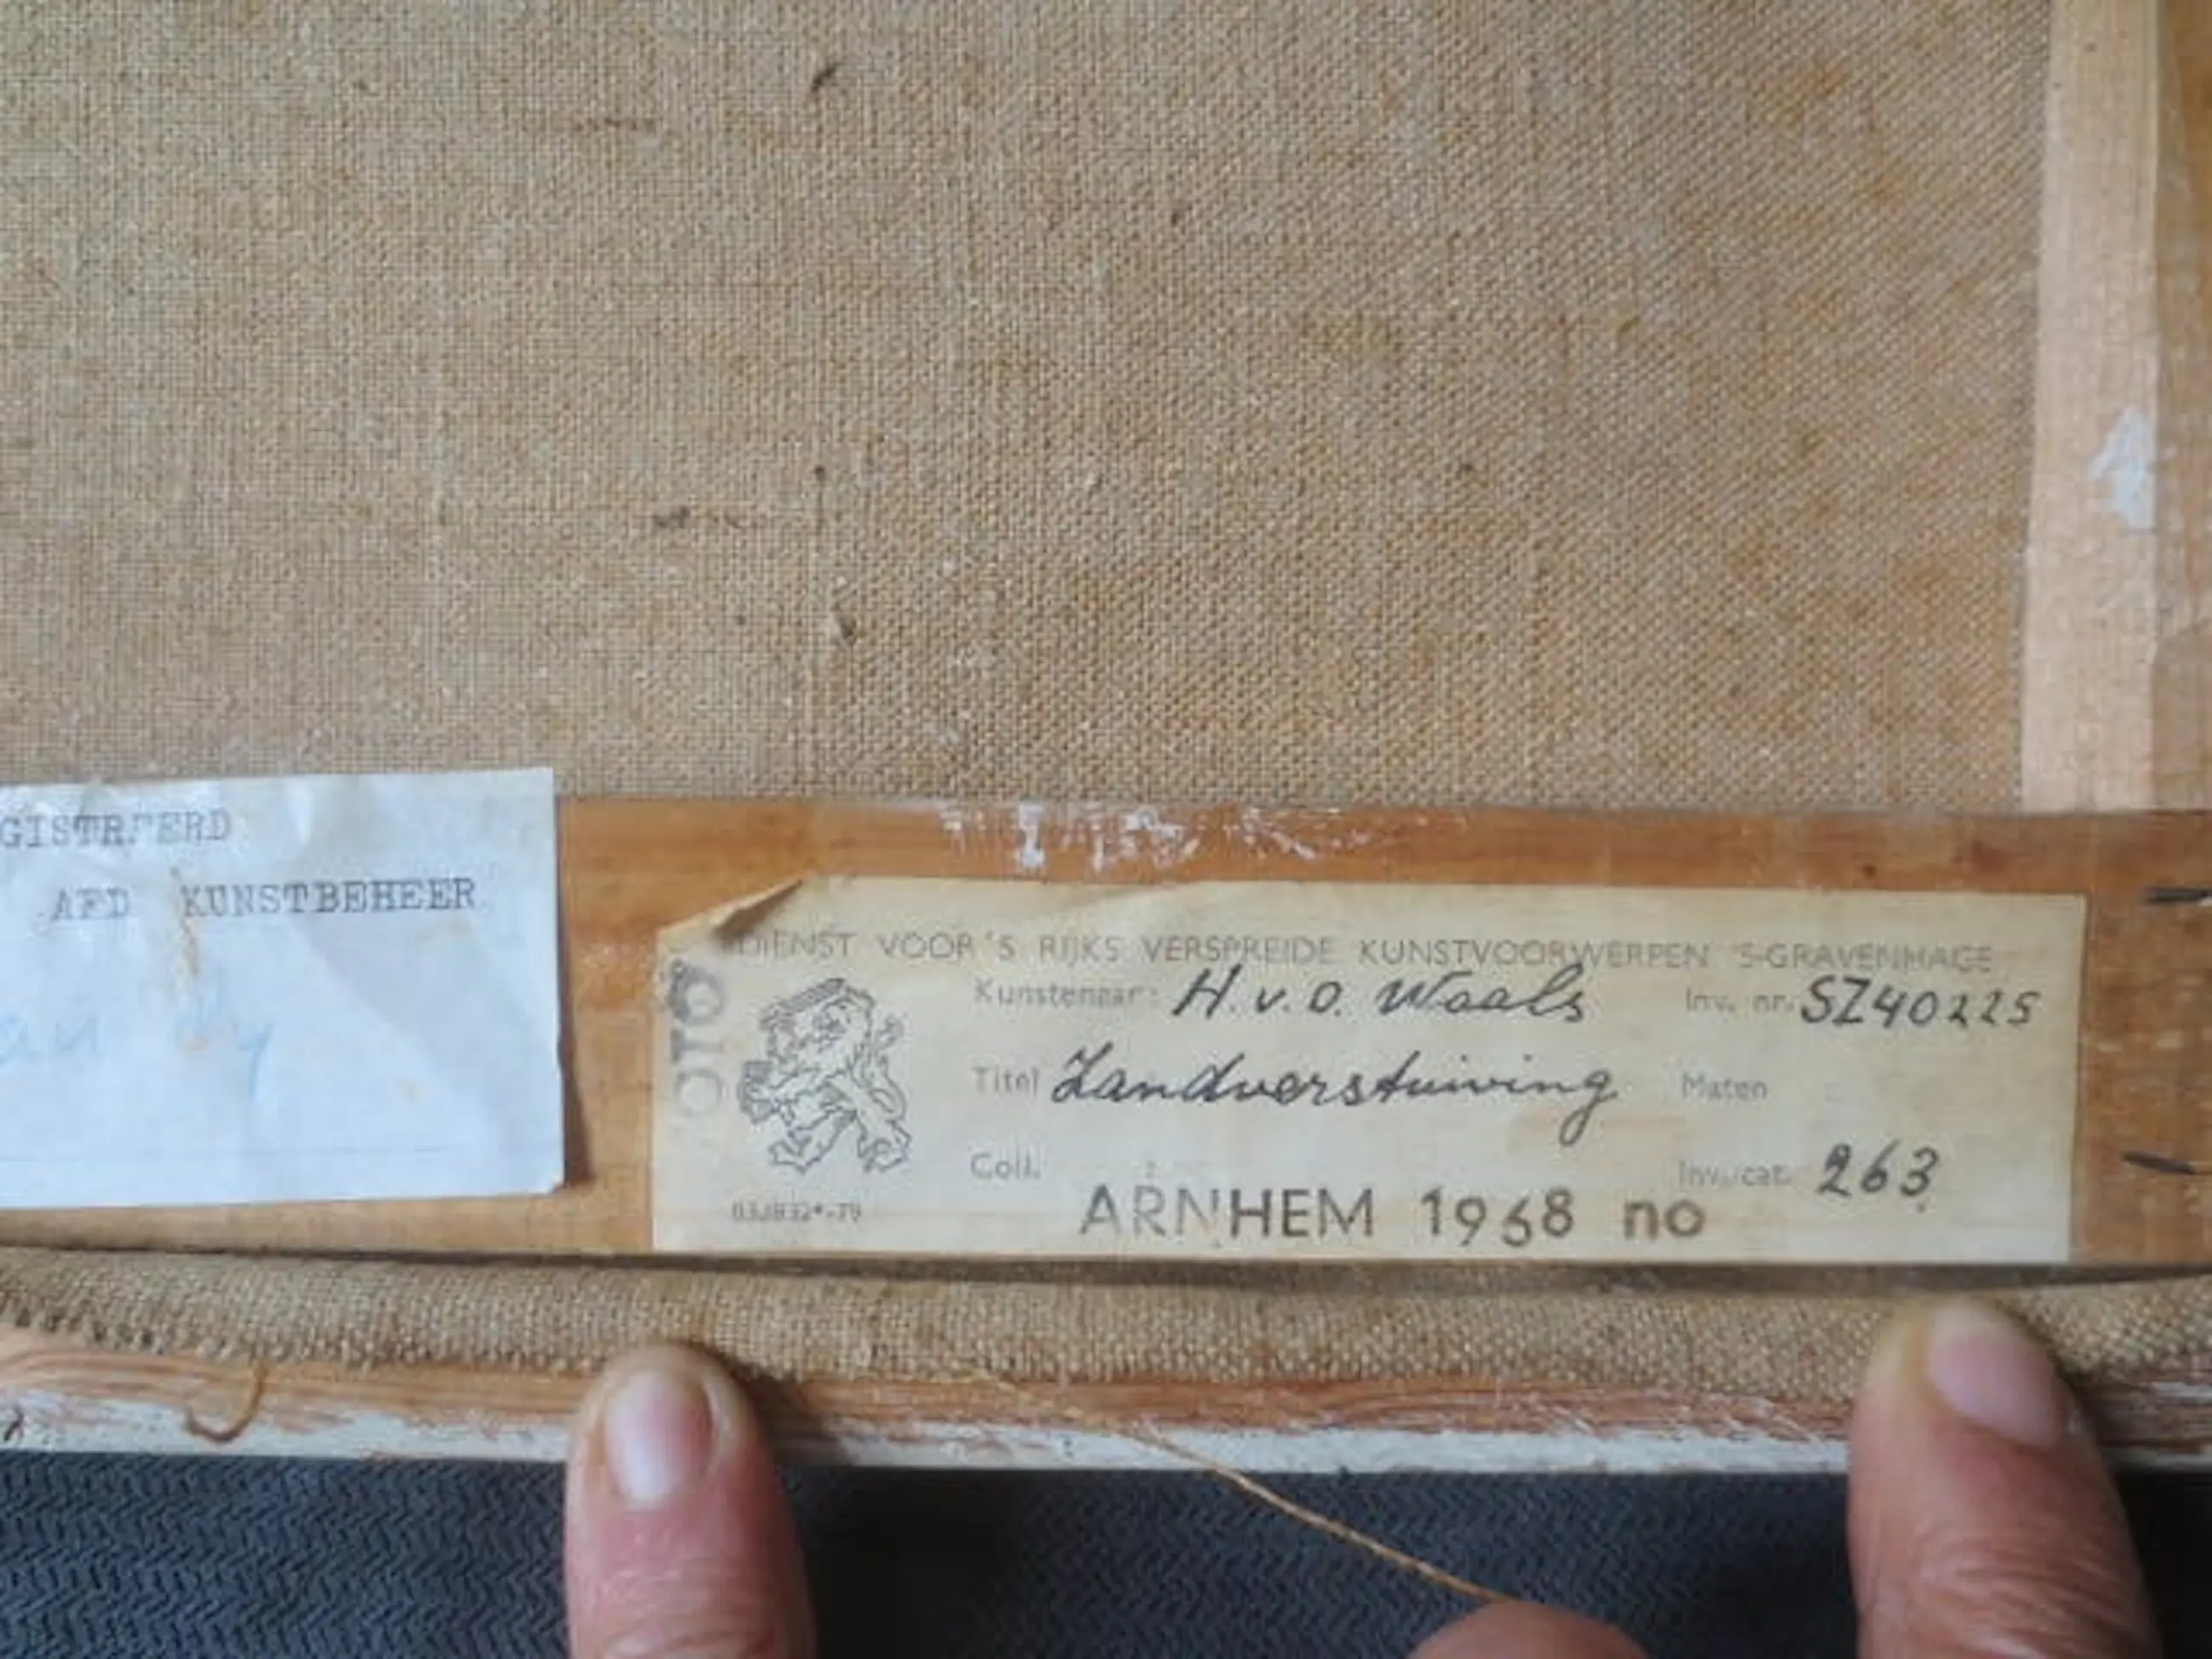 GISTREERD
AFD KUNSTBEHEER
DIENST VOOR 'S RIJKS VERSPREIDE KUNSTVOORWERPEN 'S-GRAVENHAGE
OTO
Kunstenaar: H. v. D. Waals Inv. nr. SZ40225
Titel Zandverstuiving Maten
Coll. Inv. cat. 263
ARNHEM 1968 no